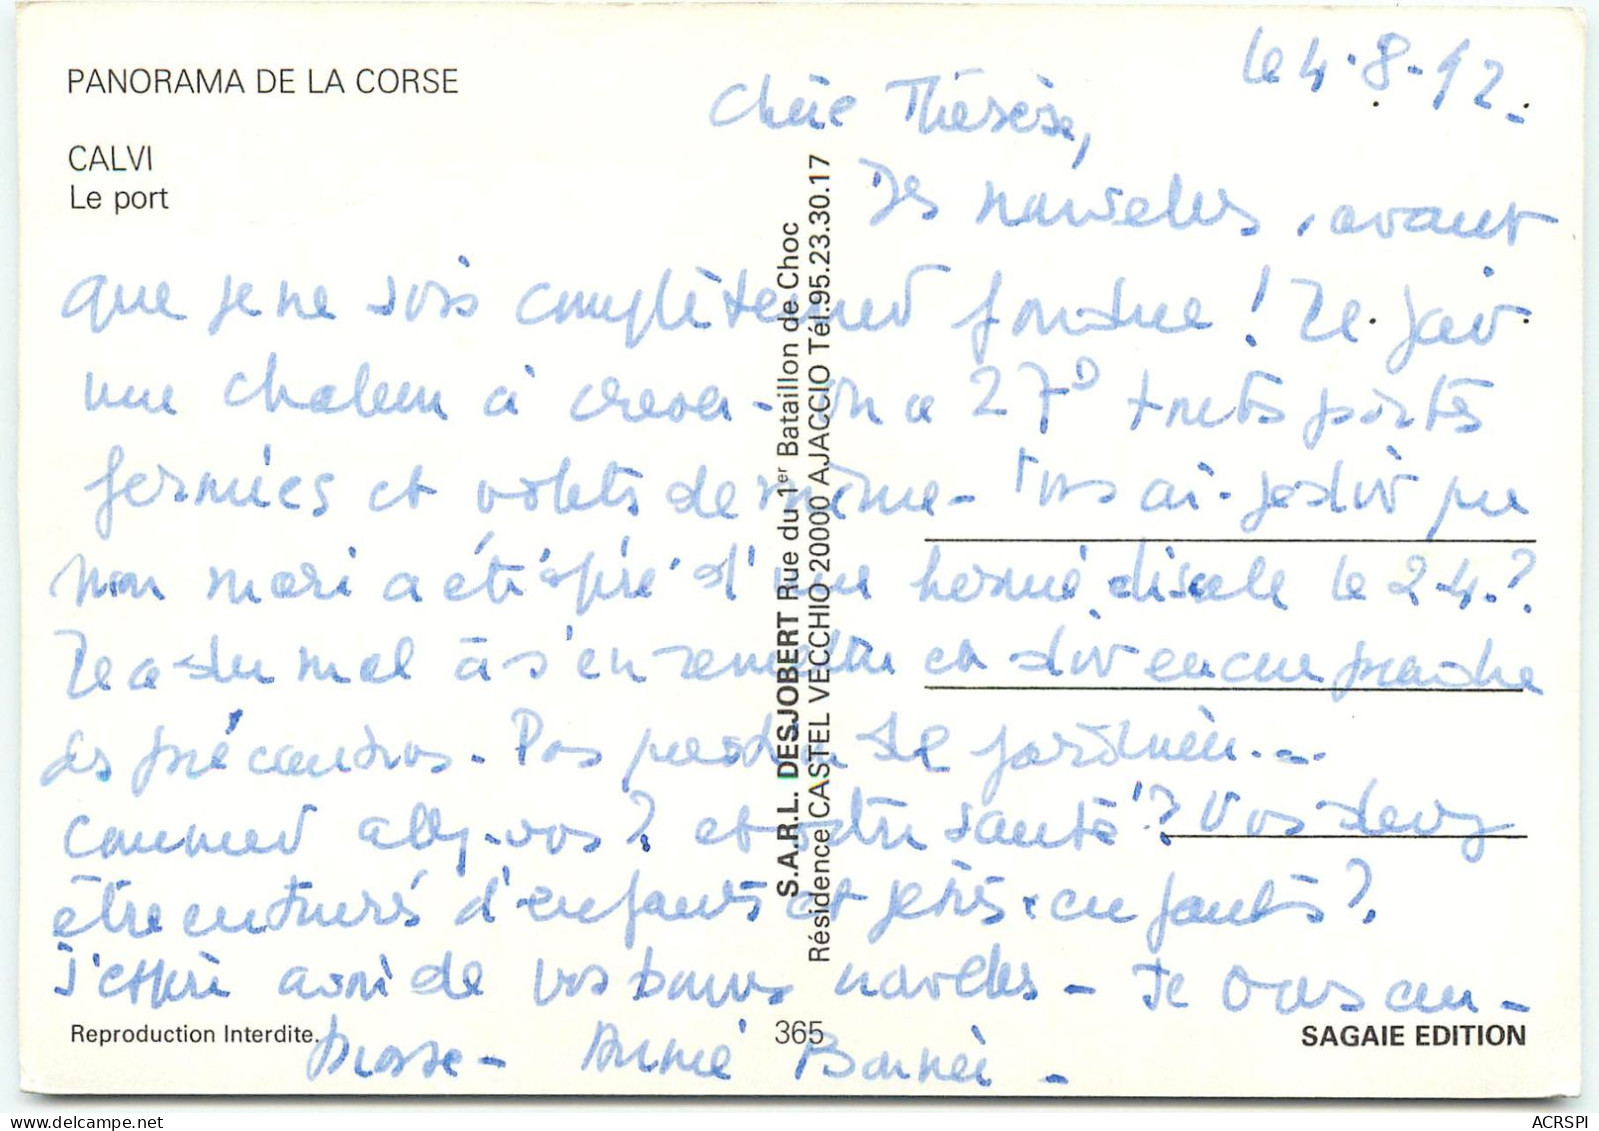 PANORAMA DE LA CORSE
CALVI
Le port
le 4.8.92.
Chère Thérèse,
Des nouvelles, avant
que je ne sois complètement fondue ! Il fait
une chaleur à crever - on a 27° toutes portes
fermées et volets de même - Vous ai-je dit que
mon mari a été opéré d'une hernie discale le 24.?
Il a du mal à s'en remettre et doit encore prendre
des précautions - Pas question de jardiner...
comment allez-vous ? et votre santé ? Vous devez
être entourés d'enfants et petits-enfants ?
J'espère avoir de vos bonnes nouvelles - Je vous em-
brasse - Annie
S.A.R.L. DESJOBERT Rue du 1er Bataillon de Choc
Résidence CASTEL VECCHIO 20000 AJACCIO Tél.95.23.30.17
Reproduction Interdite.
365
SAGAIE EDITION
ACRSPI